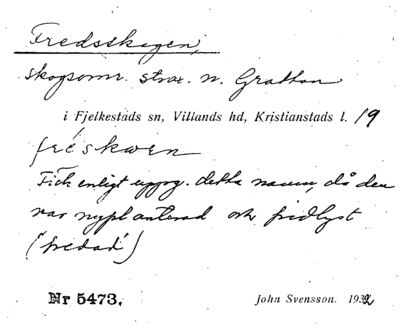 Fredsskogen,
skogsomr. strax n. Grätton
i Fjelkestads sn, Villands hd, Kristianstads l. 19
freskwen
Fick enligt uppg. detta namn, då den
var nyplanterad och fridlyst
("fredad")
Nr 5473. John Svensson. 1932